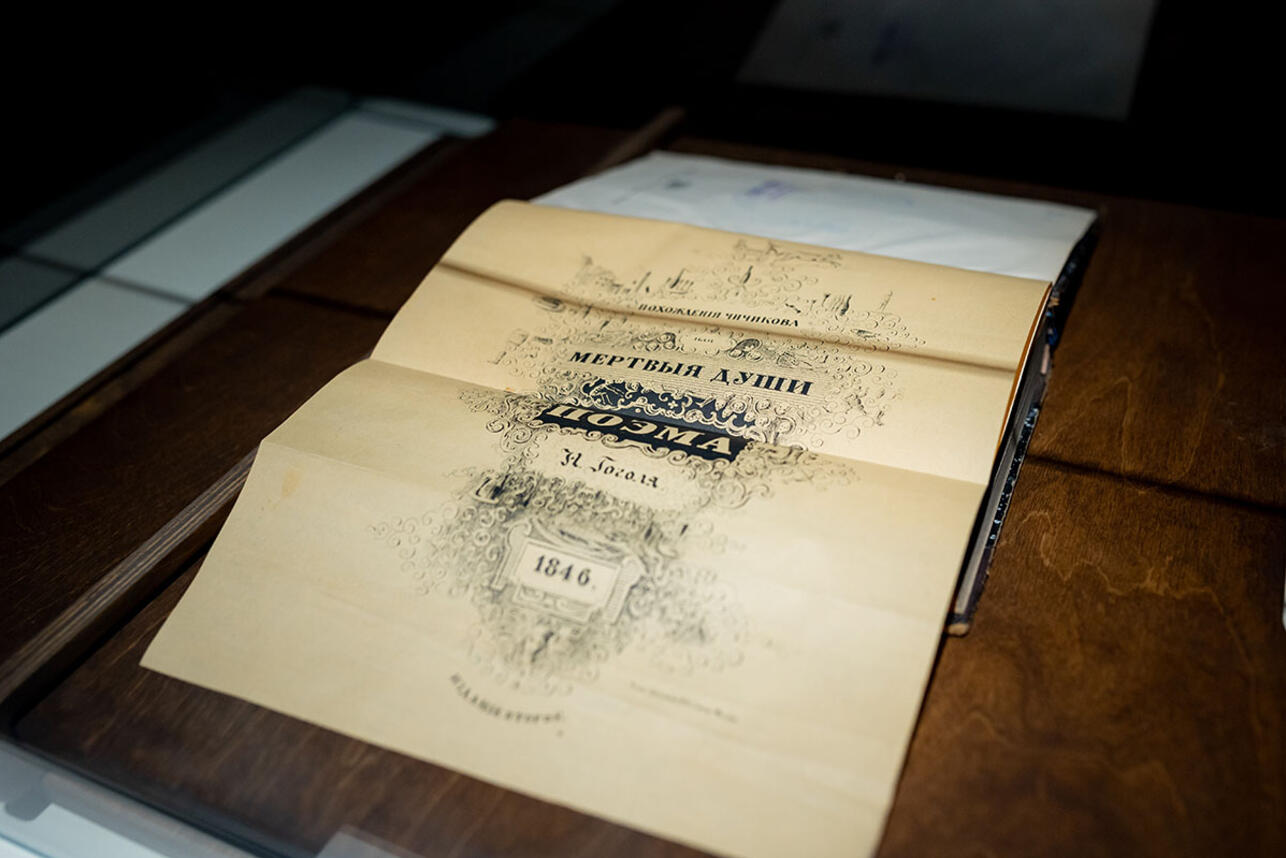 ПОХОЖДЕНІЯ ЧИЧИКОВА
ИЛИ
МЕРТВЫЯ ДУШИ
ПОЭМА
Н. Гоголя
1846.
ИЗДАНІЕ ВТОРОЕ.